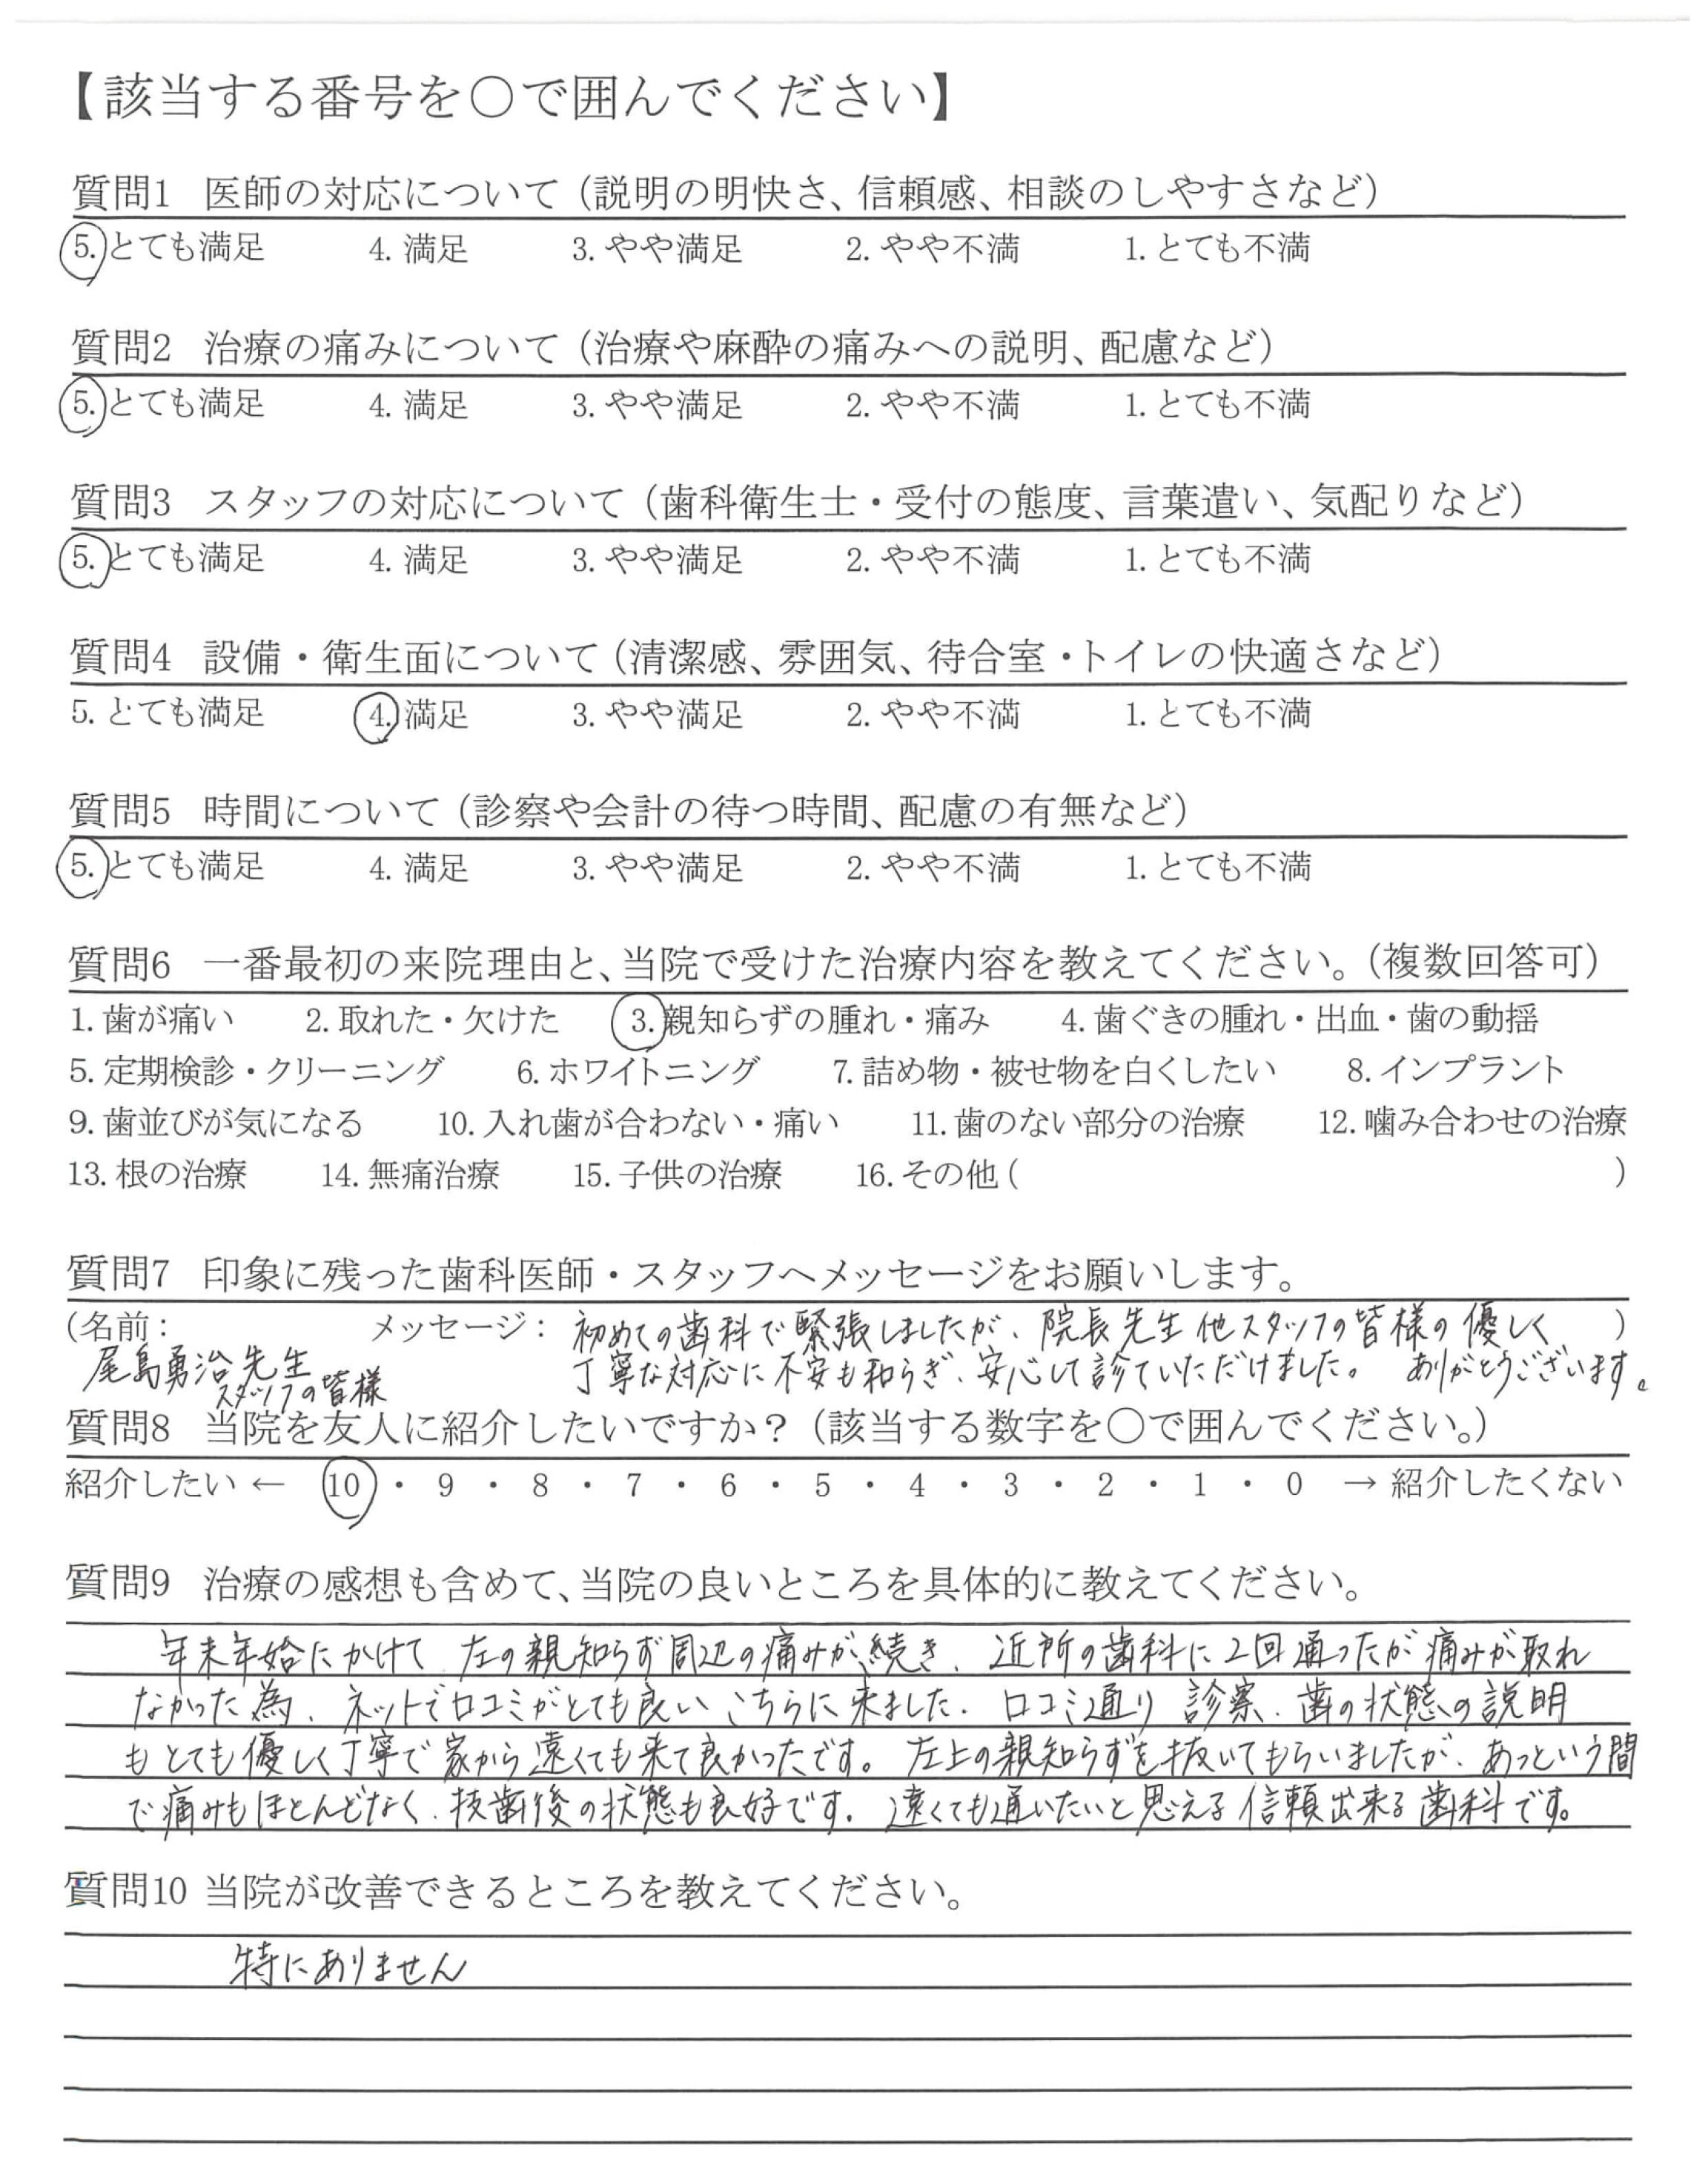 【該当する番号を○で囲んでください】
質問1 医師の対応について（説明の明快さ、信頼感、相談のしやすさなど）
5. とても満足 4. 満足 3. やや満足 2. やや不満 1. とても不満
質問2 治療の痛みについて（治療や麻酔の痛みへの説明、配慮など）
5. とても満足 4. 満足 3. やや満足 2. やや不満 1. とても不満
質問3 スタッフの対応について（歯科衛生士・受付の態度、言葉遣い、気配りなど）
5. とても満足 4. 満足 3. やや満足 2. やや不満 1. とても不満
質問4 設備・衛生面について（清潔感、雰囲気、待合室・トイレの快適さなど）
5. とても満足 4. 満足 3. やや満足 2. やや不満 1. とても不満
質問5 時間について（診察や会計の待つ時間、配慮の有無など）
5. とても満足 4. 満足 3. やや満足 2. やや不満 1. とても不満
質問6 一番最初の来院理由と、当院で受けた治療内容を教えてください。（複数回答可）
1. 歯が痛い 2. 取れた・欠けた 3. 親知らずの腫れ・痛み 4. 歯ぐきの腫れ・出血・歯の動揺
5. 定期検診・クリーニング 6. ホワイトニング 7. 詰め物・被せ物を白くしたい 8. インプラント
9. 歯並びが気になる 10. 入れ歯が合わない・痛い 11. 歯のない部分の治療 12. 噛み合わせの治療
13. 根の治療 14. 無痛治療 15. 子供の治療 16. その他（ ）
質問7 印象に残った歯科医師・スタッフへメッセージをお願いします。
（名前： メッセージ： 初めての歯科で緊張しましたが、院長先生他スタッフの皆様の優しく ）
尾島勇治先生 丁寧な対応に不安も和らぎ、安心して診ていただけました。 ありがとうございます。
スタッフの皆様
質問8 当院を友人に紹介したいですか？（該当する数字を○で囲んでください。）
紹介したい ← 10 ・ 9 ・ 8 ・ 7 ・ 6 ・ 5 ・ 4 ・ 3 ・ 2 ・ 1 ・ 0 → 紹介したくない
質問9 治療の感想も含めて、当院の良いところを具体的に教えてください。
年末年始にかけて 左の親知らず周辺の痛みが続き、近所の歯科に2回通ったが痛みが取れ
なかった為、ネットで口コミがとても良いこちらに来ました。口コミ通り 診察、歯の状態の説明
もとても優しく丁寧で家から遠くても来て良かったです。左上の親知らずを抜いてもらいましたが、あっという間
で痛みもほとんどなく、抜歯後の状態も良好です。遠くても通いたいと思える信頼出来る歯科です。
質問10 当院が改善できるところを教えてください。
特にありません